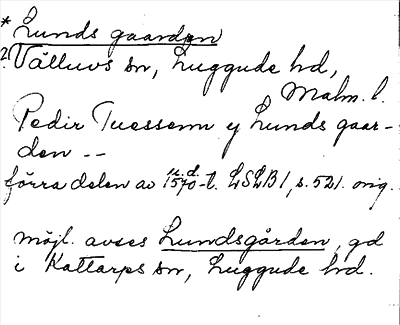 * Lunds gaarden
?. Välluvs sn, Luggude hd,
Malm. l.
Pedir Tuessenn y Lunds gaar-
den --
förra delen av n.d. 1570-t. LSLB1, s. 521. orig.
möjl. avses Lundsgården, gd
i Kattarps sn, Luggude hd.